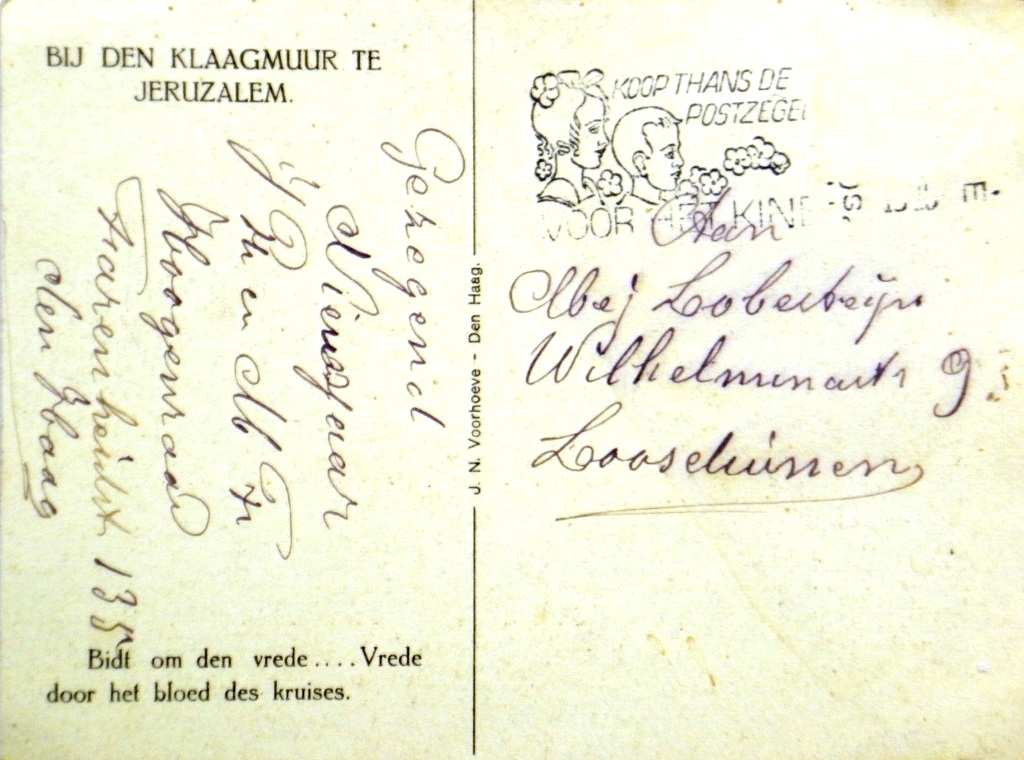 BIJ DEN KLAAGMUUR TE
JERUZALEM.
Gezegend
Nieuwjaar
en
Hoogenraad
den Haag
Bidt om den vrede .... Vrede
door het bloed des kruises.
J. N. Voorhoeve - Den Haag.
KOOP THANS DE
POSTZEGEL
VOOR HET KIND
Aan
Mej
Wilhelminastr 9
Loosduinen